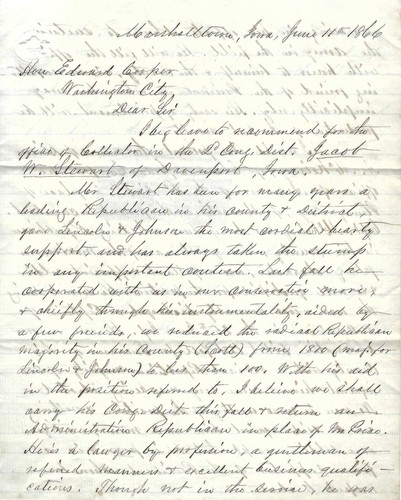 Marshalltown, Iowa, June 11th 1866
Hon Edward Cooper,
Washington City,
Dear Sir
I beg leave to recommend for the
office of Collector in the 2d Cong. Dist. Jacob
W. Stewart of Davenport, Iowa.
Mr Stewart has been for many years a
leading Republican in his county & District,
gave Lincoln & Johnson the most cordial & hearty
support, and has always taken the stump
in any important contest. Last fall he
cooperated with us in our conservative move,
& chiefly through his instrumentality, aided by
a few friends, we reduced the radical Republican
majority in his County (Scott) from 1800 (maj. for
Lincoln & Johnson) to less than 100. With his aid
in the position refered to, I believe we shall
carry his Cong. Dist. this fall & return an
Administration Republican in place of Mr Price.
He is a lawyer by profession, a gentleman of
refined manners & excellent business qualifi-
cations. Though not in the service, he was